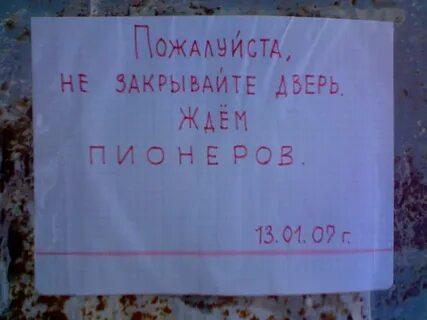 Пожалуйста,
не закрывайте дверь.
Ждём
пионеров.
13.01.07 г.